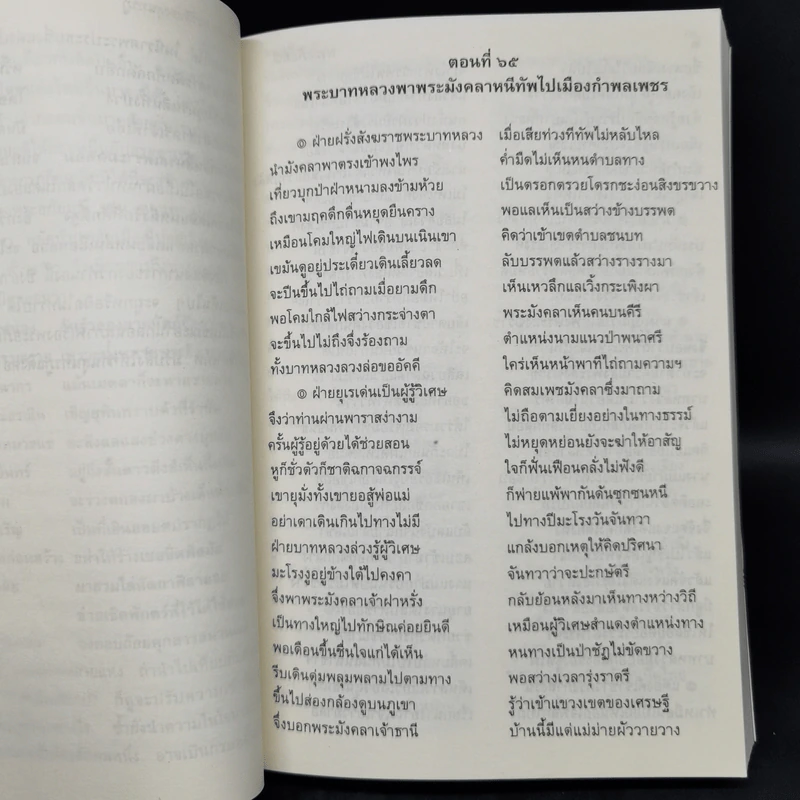 ตอนที่ ๖๕
พระบาทหลวงพาพระมังคลาหนีทัพไปเมืองกำพลเพชร
๏ ฝ่ายฝรั่งสังฆราชพระบาทหลวง เมื่อเสียท่วงทีทัพไม่หลับไหล
นำมังคลาพาตรงเข้าพงไพร ค่ำมืดไม่เห็นหนตำบลทาง
เที่ยวบุกป่าฝ่าหนามลงข้ามห้วย เป็นตรอกตรวยโตรกชะง่อนสิงขรขวาง
ถึงเขามฤคดึกดื่นหยุดยืนคราง พอแลเห็นเป็นสว่างข้างบรรพต
เหมือนโคมใหญ่ไฟเดินบนเนินเขา คิดว่าเข้าเขตตำบลชนบท
เขม้นดูอยู่ประเดี๋ยวเดินเลี้ยวลด ลับบรรพตแล้วสว่างรางรางมา
จะปีนขึ้นไปไถ่ถามเมื่อยามดึก เห็นเหวลึกแลเวิ้งกระเพิงผา
พอโคมใกล้ไฟสว่างกระจ่างตา พระมังคลาเห็นคนบนคีรี
จะขึ้นไปไม่ถึงจึ่งร้องถาม ตำแหน่งนามแนวป่าพนาศรี
ทั้งบาทหลวงลวงล่อขออัคคี ใคร่เห็นหน้าพาทีไถ่ถามความฯ
๏ ฝ่ายยุเรเด่นเป็นผู้รู้วิเศษ คิดสมเพชมังคลาซึ่งมาถาม
จึงว่าท่านผ่านพาราสง่างาม ไม่ถือตามเยี่ยงอย่างในทางธรรม์
ครั้นผู้รู้อยู่ด้วยได้ช่วยสอน ไม่หยุดหย่อนยังจะฆ่าให้อาสัญ
หูก็ชั่วตัวก็ชาติฉกาจฉกรรจ์ ใจก็ฟั่นเฟือนคลั่งไม่ฟังดี
เขายุมั่งทั้งเขายอสู้พ่อแม่ ก็พ่ายแพ้พากันด้นซุกซนหนี
อย่าเดาเดินเกินไปทางไม่มี ไปทางปีมะโรงวันจันทวา
ฝ่ายบาทหลวงล่วงรู้ผู้วิเศษ แกล้งบอกเหตุให้คิดปริศนา
มะโรงงูอยู่ข้างใต้ไปคงคา จันทวาว่าจะปะกษัตรี
จึ่งพาพระมังคลาเจ้าฝาหรั่ง กลับย้อนหลังมาเห็นทางหว่างวิถี
เป็นทางใหญ่ไปทักษิณค่อยยินดี เหมือนผู้วิเศษสำแดงตำแหน่งทาง
พอเดือนขึ้นชื่นใจแก่ได้เห็น หนทางเป็นป่าชัฏไม่ขัดขวาง
รีบเดินดุ่มพลุมพลามไปตามทาง พอสว่างเวลารุ่งราตรี
ขึ้นไปส่องกล้องดูบนภูเขา รู้ว่าเข้าแขวงเขตของเศรษฐี
จึ่งบอกพระมังคลาเจ้าธานี บ้านนี้มีแต่แม่ม่ายผัววายวาง